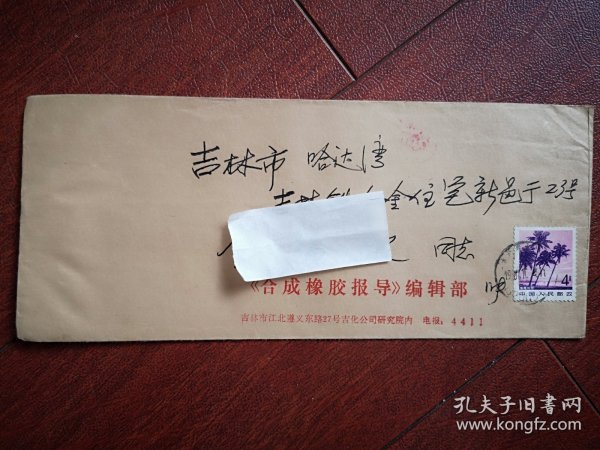 吉林市 哈达湾
吉林铁合金住宅新邑于23号
同志
《合成橡胶报导》编辑部
吉林市江北遵义东路27号吉化公司研究院内 电报：4411
4
中国人民邮政
孔夫子旧书网
www.kongfz.com